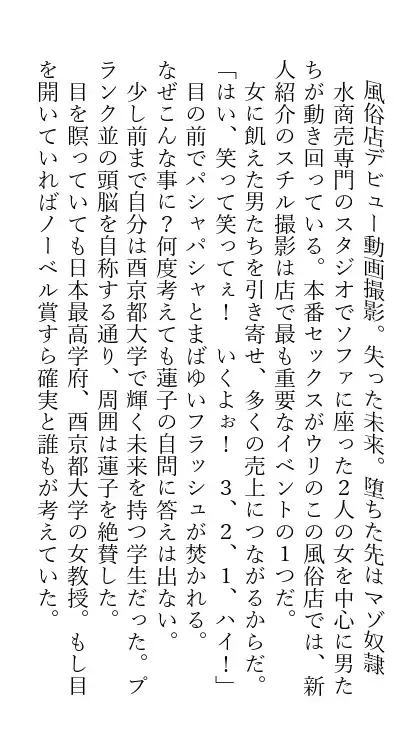 風俗店デビュー動画撮影。失った未来。堕ちた先はマゾ奴隷
　水商売専門のスタジオでソファに座った２人の女を中心に男た
ちが動き回っている。本番セックスがウリのこの風俗店では、新
人紹介のスチル撮影は店で最も重要なイベントの１つだ。
　女に飢えた男たちを引き寄せ、多くの売上につながるからだ。
「はい、笑って笑ってぇ！　いくよぉ！　３、２、１、ハイ！」
　目の前でパシャパシャとまばゆいフラッシュが焚かれる。
なぜこんな事に？何度考えても蓮子の自問に答えは出ない。
　少し前まで自分は酉京都大学で輝く未来を持つ学生だった。プ
ランク並の頭脳を自称する通り、周囲は蓮子を絶賛した。
　目を瞑っていても日本最高学府、酉京都大学の女教授。もし目
を開いていればノーベル賞すら確実と誰もが考えていた。